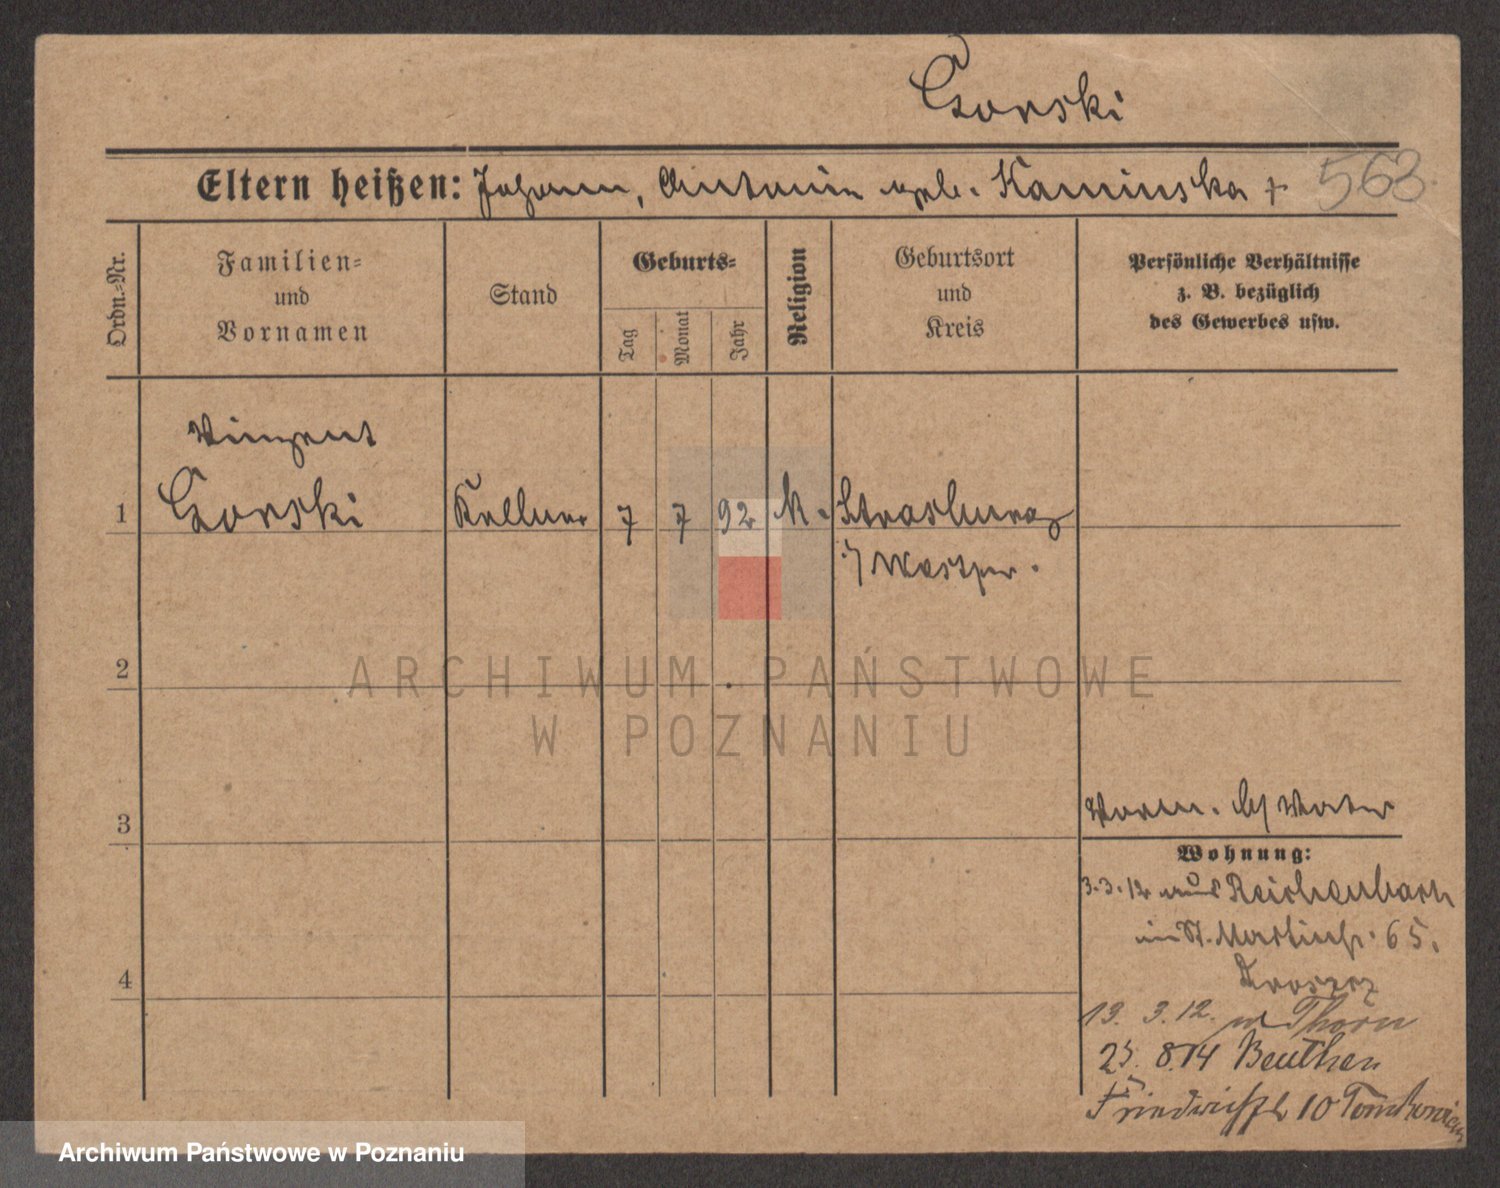 Gorski
Eltern heißen: Johann, Antonie geb. Kaminska +
563.
Ordn.-Nr.
Familien-
und
Vornamen
Stand
Geburts-
Tag
Monat
Jahr
Religion
Geburtsort
und
Kreis
Persönliche Verhältnisse
z. B. bezüglich
des Gewerbes usw.
Vinzent
1 Gorski Kellner 7 7 92 k. Strasburg
i/ Westpr.
2
3
Vorm. d/ Vater
Wohnung:
3.3.12 aus Reichenbach
in St. Martinstr. 65.
4
13. 3.12. n Thorn
25. 8.14 Beuthen
10
ARCHIWUM PAŃSTWOWE
W POZNANIU
Archiwum Państwowe w Poznaniu